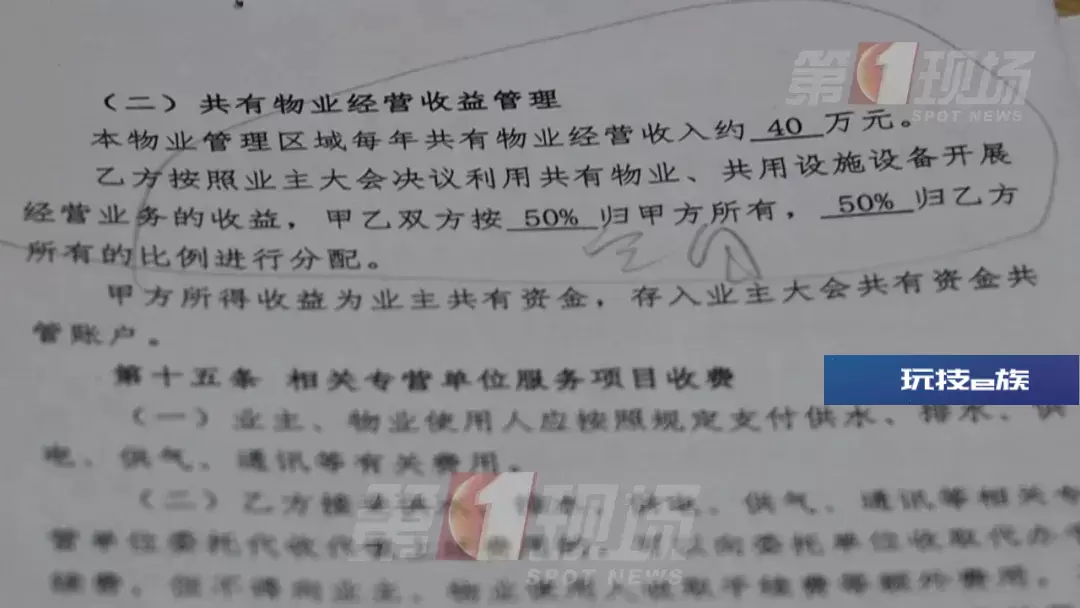 第1现场
SPOT NEWS
（二）共有物业经营收益管理
本物业管理区域每年共有物业经营收入约 40 万元。
乙方按照业主大会决议利用共有物业、共用设施设备开展
经营业务的收益，甲乙双方按 50% 归甲方所有， 50% 归乙方
所有的比例进行分配。
甲方所得收益为业主共有资金，存入业主大会共有资金共
管账户。
第十五条 相关专营单位服务项目收费
玩技e族
（一）业主、物业使用人应按照规定支付供水、排水、供
电、供气、通讯等有关费用。
（二）乙方接受供水、排水、供电、供气、通讯等相关专
营单位委托代收代 可以向委托单位收取代办手
续费，但不得向业主、物业使用人收取手续费等额外费用。
第1现场
SPOT NEWS